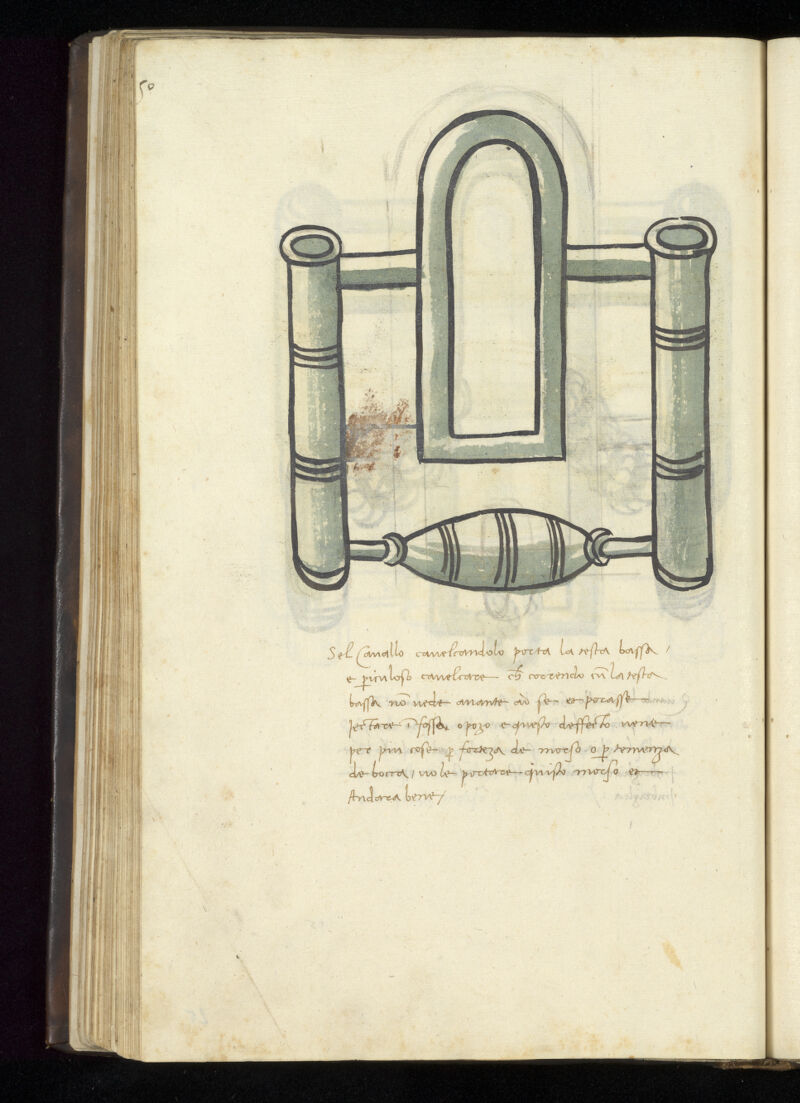 50
Sel Cavallo cavelcandolo porta la testa bassa /
e piculoso cavelcare ch correndo cu la testa
bassa no vede avante ad se et porasse
iectare i fossa o pozo e questo deffecto vene
per piu cose p forteza de morso o p temenza
de bocca / vole portare quisto morso et
Andara bene /